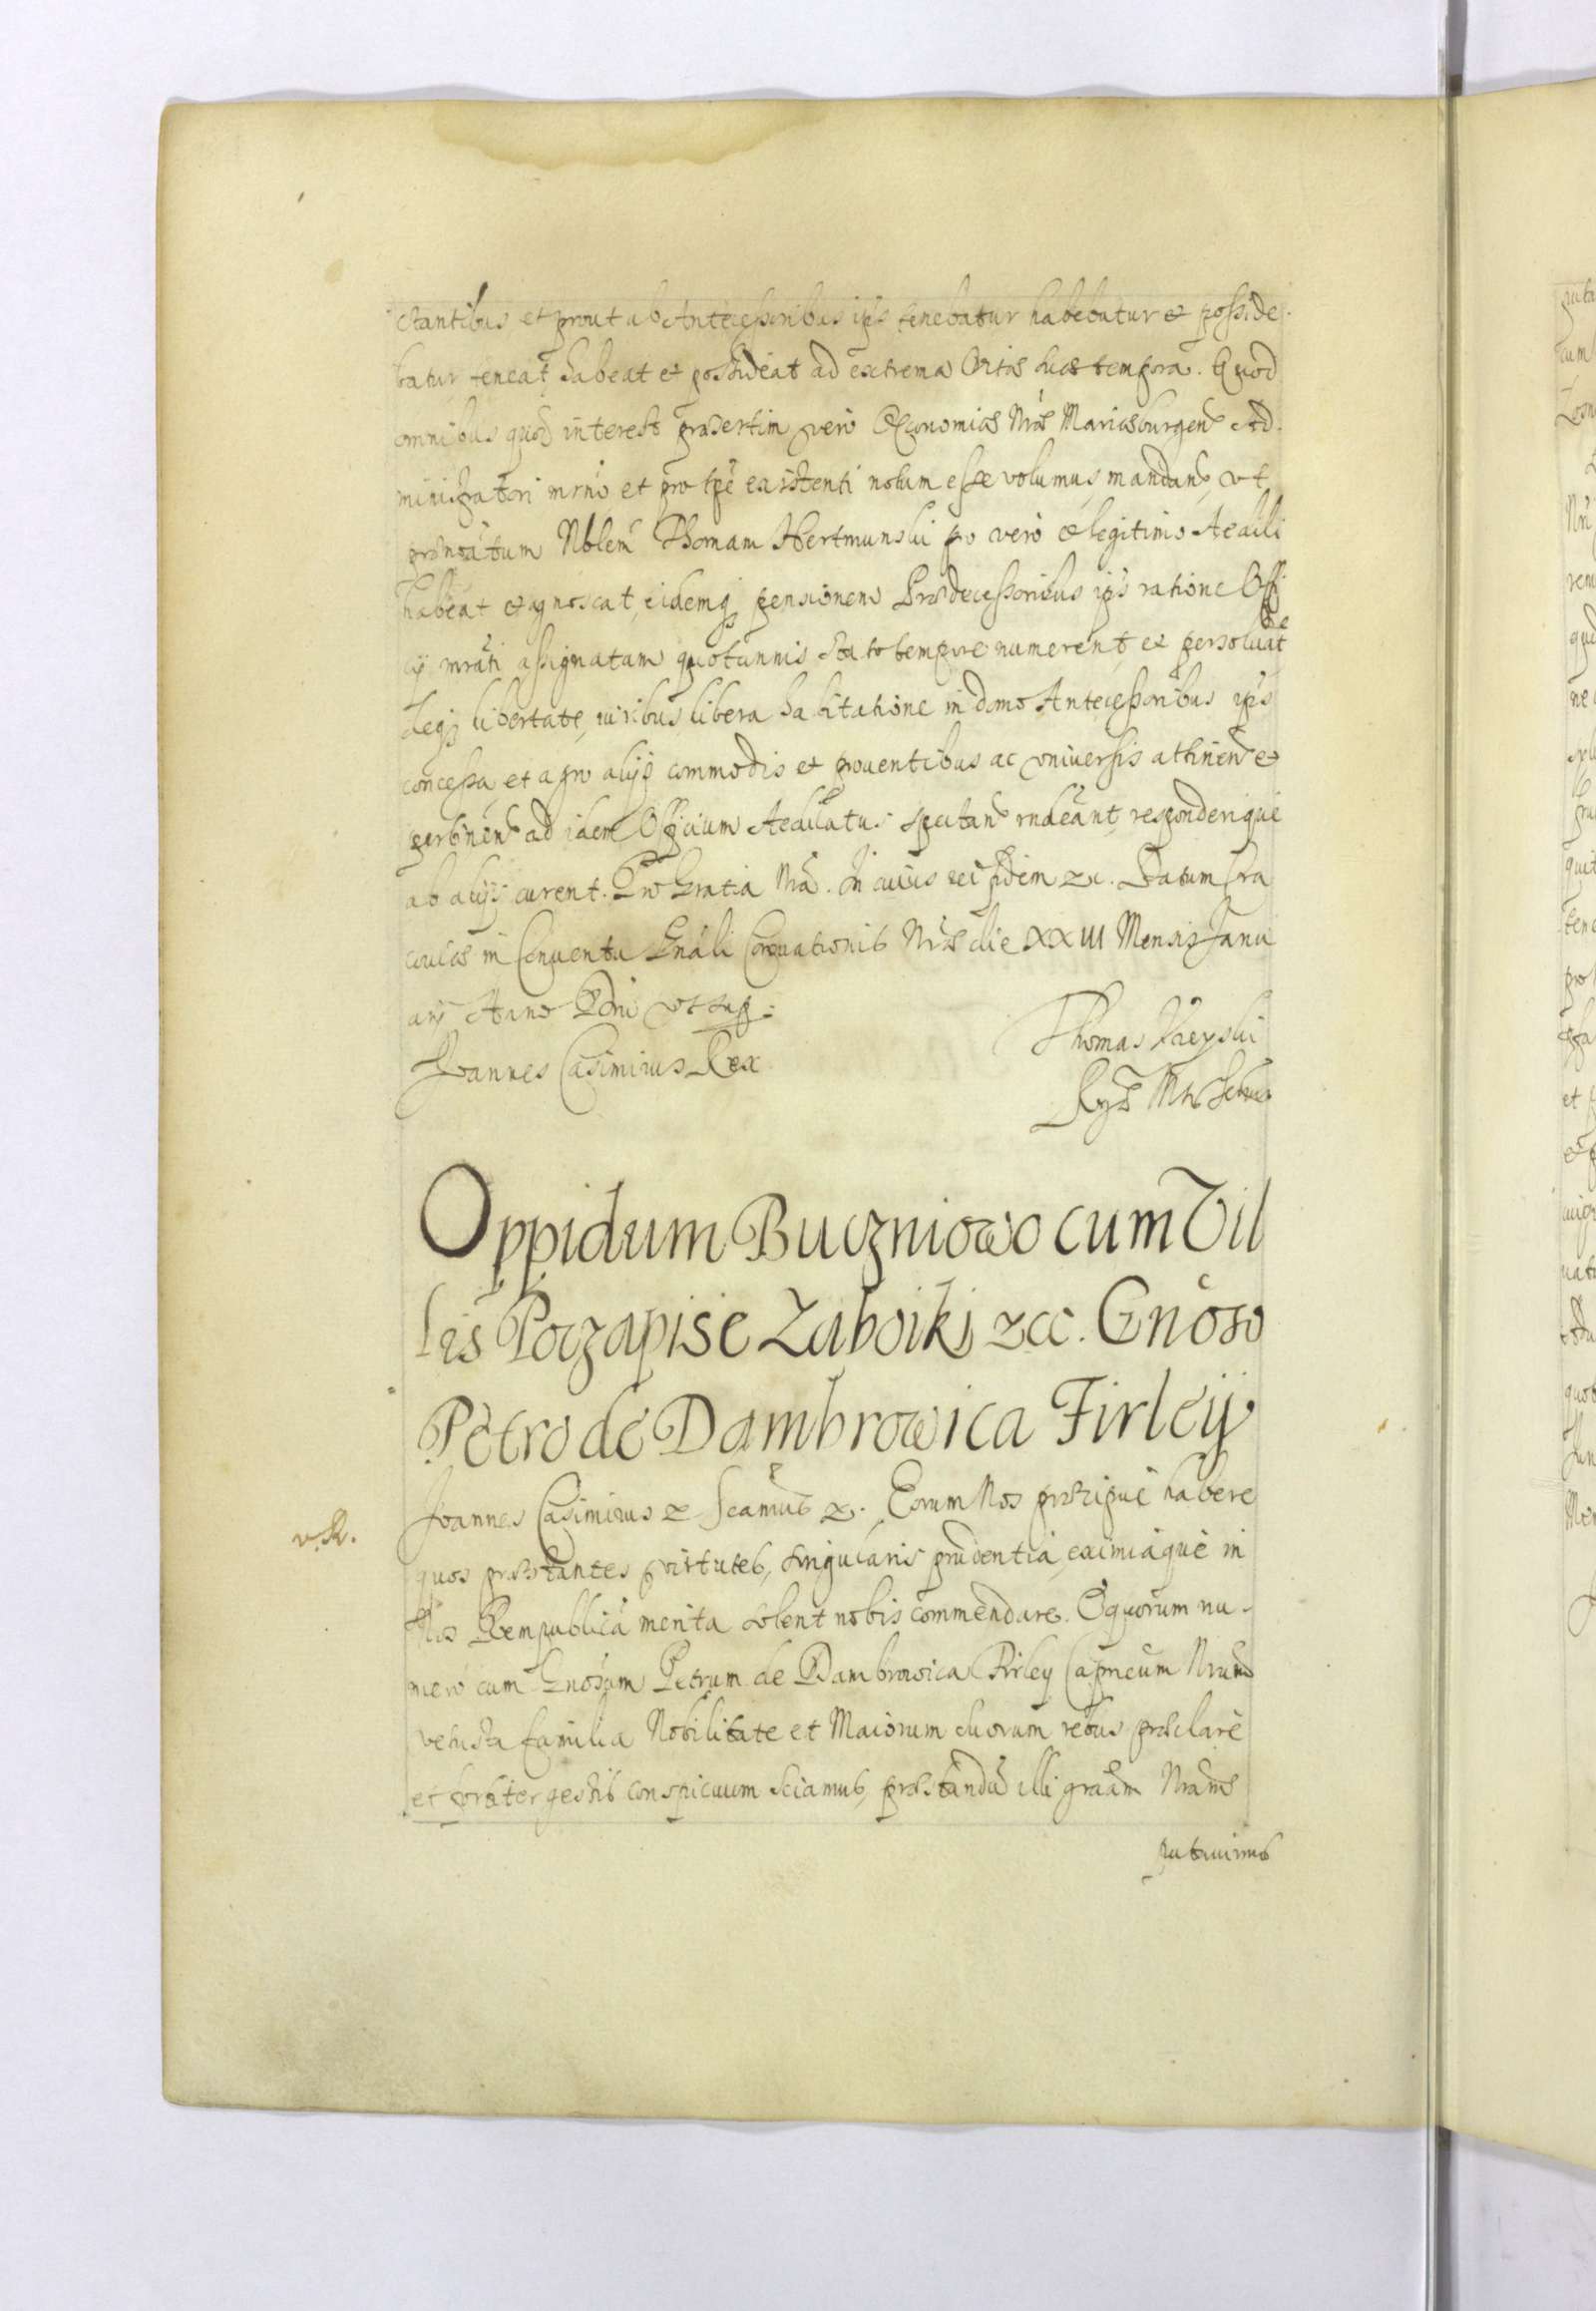 ctantibus et prout ab Antecessoribus ip̃s tenebatur habebatur et posside
batur teneat habeat et possideat ad extrema Vitæ suæ tempora. Quod
omnibus quor̃ interest præsertim vero Œconomiæ Nr̃æ Mariæburgen̄ Ad
ministratori mrño et pro tp̃e existenti notum esse volumus, mandan̄, vt
prænõatum Nblem̃ Thomam Hertmunski pro vero et legitimo Aedili
habeat et agnoscat, eidemq̃ pensionem Prædecessoribus ip̃s ratione Offi
cij mrãti assignatam quotannis stato tempore numerent, et persoluãt
deq̃ libertate, iuribus, libera habitatione in domo Antecessoribus ip̃s
concessa, et agro alijsq̃ commodis et prouentibus ac vniuersis attinen̄ et
pertinen̄ ad idem Officium Aedilatus spectan̄ rñdeant, responderique
ab alijs curent. Pro Gratia Nrã. In cuius rei fidem &c. Datum Cra
couiæ in Conuentu Gñali Coronationis Nr̃æ die XXIII Mensis Janu
arij Anno Dñi vt sup:
Joannes Casimirus Rex
Thomas Vieyski
Rg̃æ Mtis Sctrius
Oppidum Buczniowo cum Vil
lis Poczapisie Zaboiki &cc. Gñoso
Petro de Dambrowica Firleij
v. R.
Joannes Casimirus & Scamus̃ &. Eorum Nos præcipuè habere
quos præstantes virtutes, singularis prudentia, eximiaque in
Nos Rempublicã merita solent nobis commendare. E quorum nu
mero cum Gñosum Petrum de Dambrowica Firley Capneum Nrum
vetusta familia Nobilitate et Maiorum suorum rebus præclarè
et fortiter gestis conspicuum sciamus, præstandã illi grãam Nram̃
putauimus